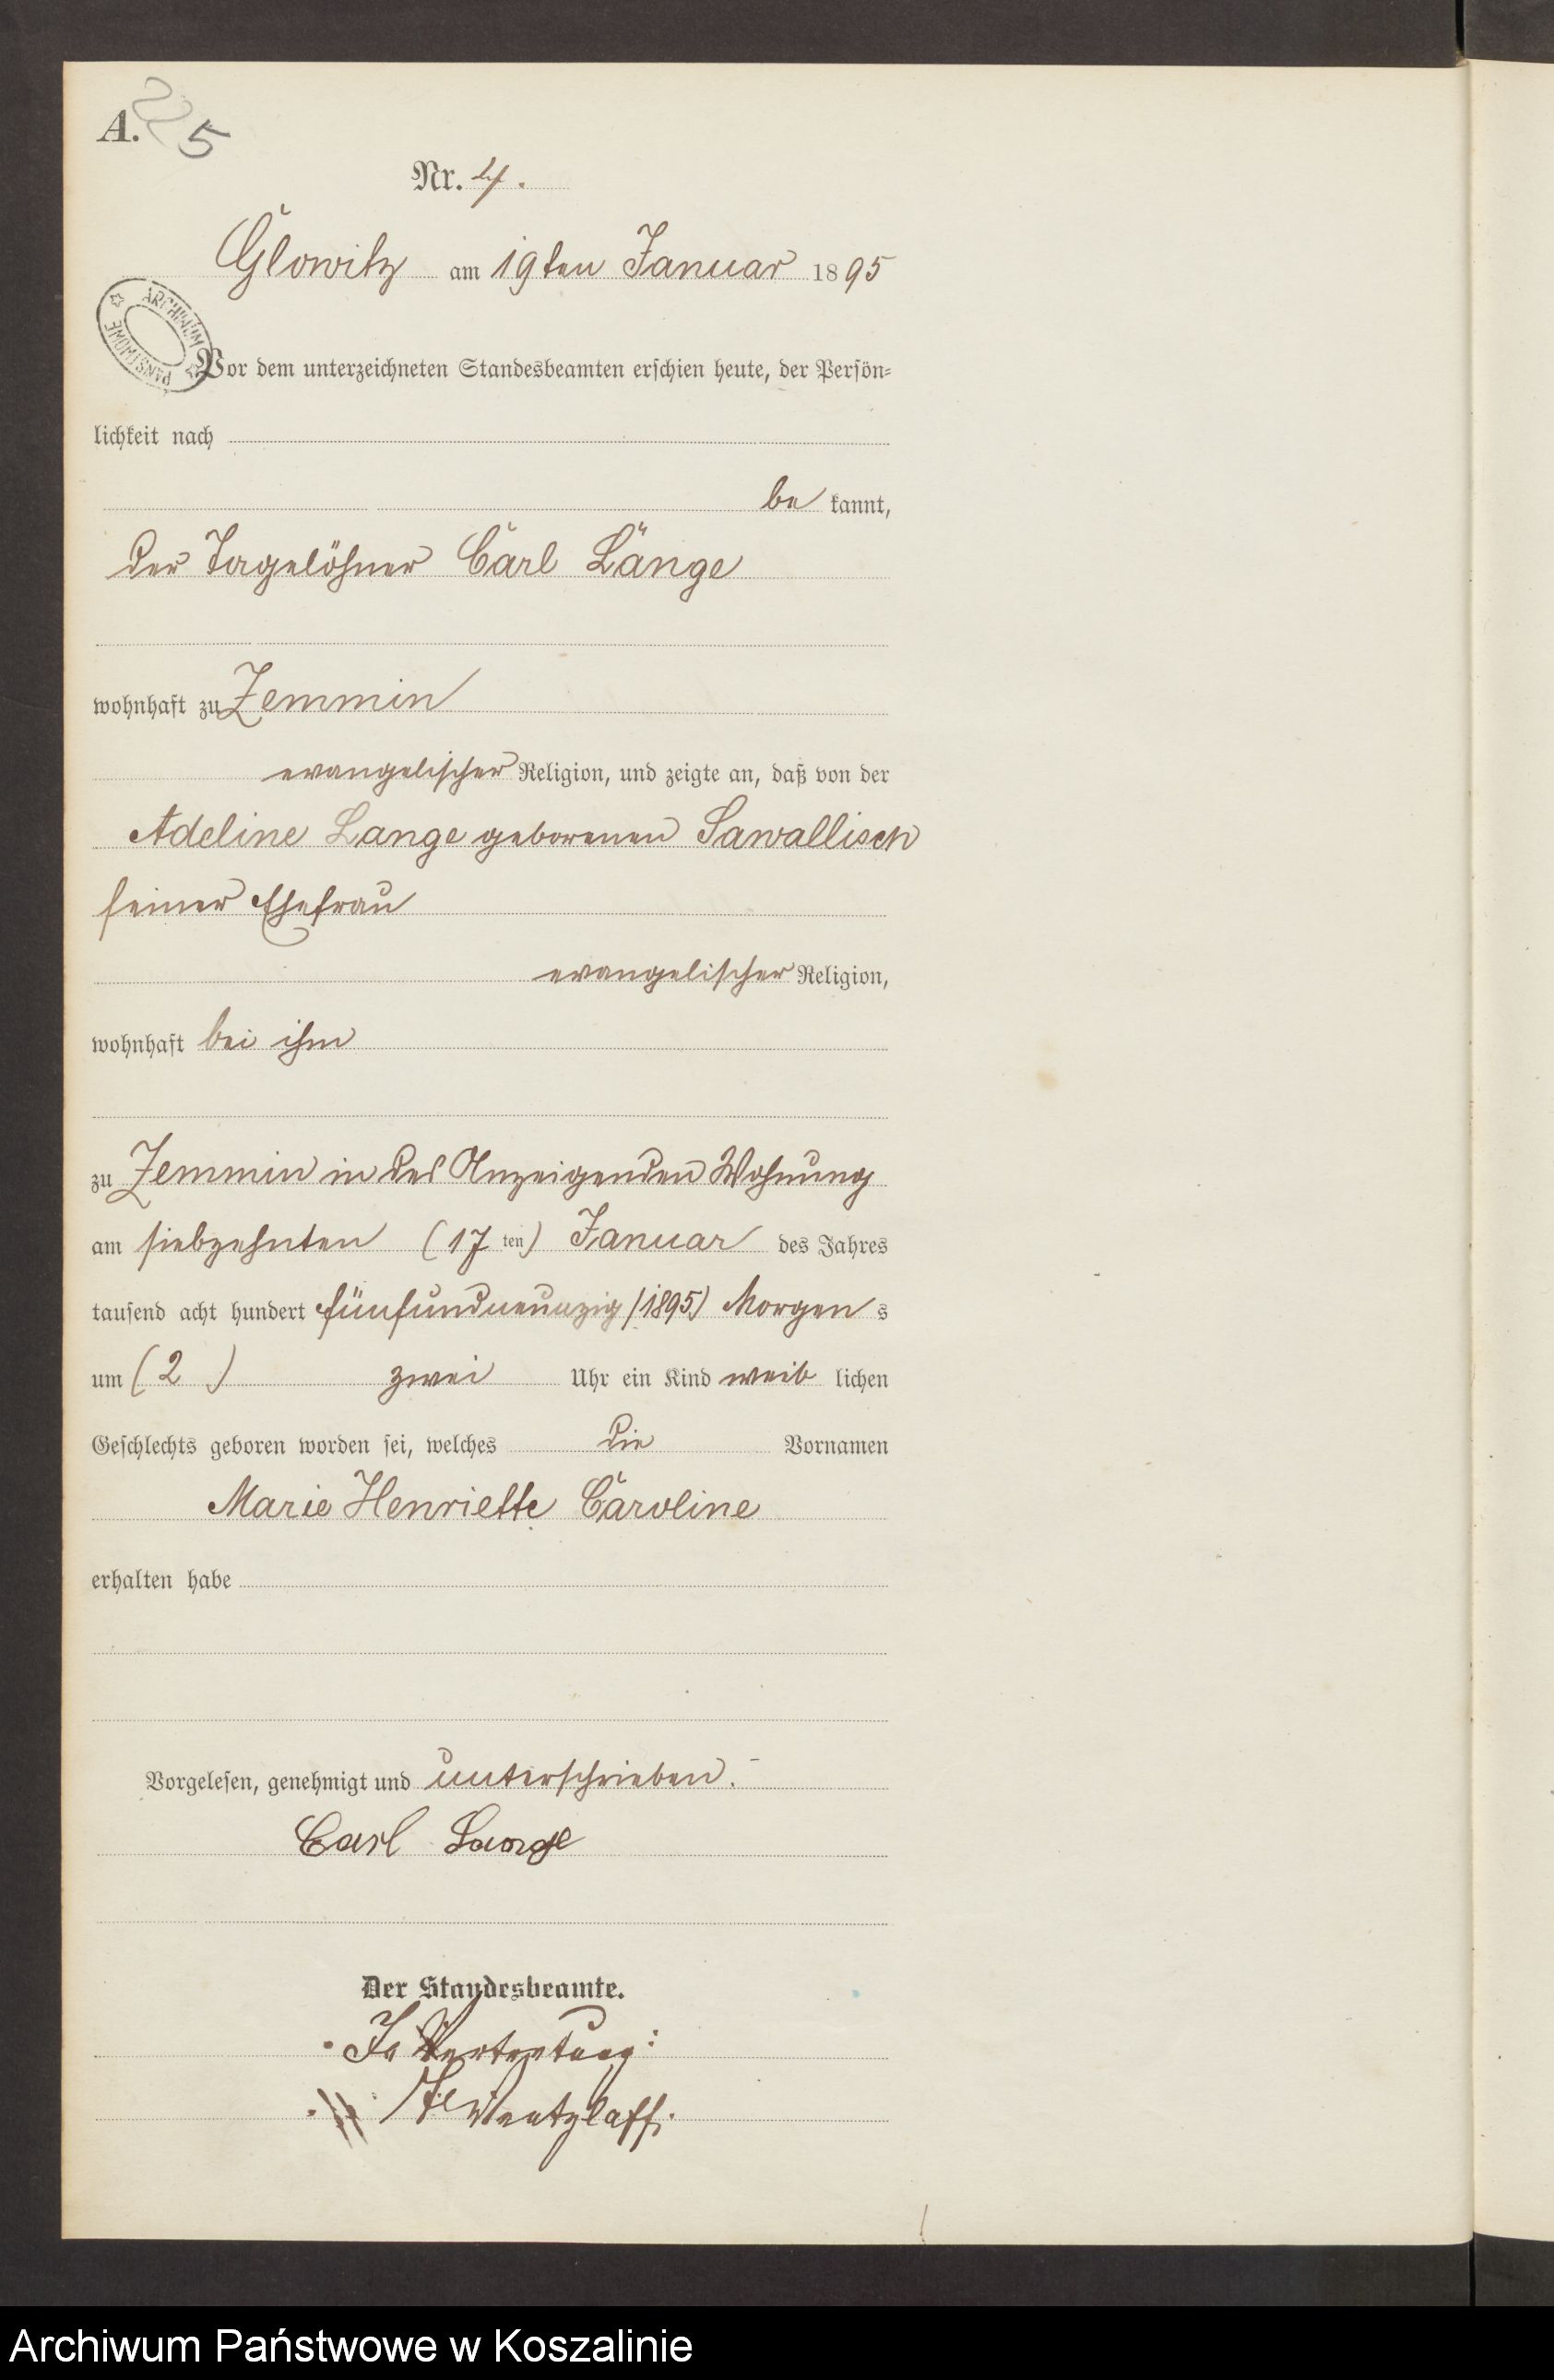 A. 5
Nr. 4.
Glowitz am 19ten Januar 1895
ARCHIWUM PAŃSTWOWE
Vor dem unterzeichneten Standesbeamten erschien heute, der Persön-
lichkeit nach
be kannt,
der Tagelöhner Carl Lange
wohnhaft zu Zemmin
evangelischer Religion, und zeigte an, daß von der
Adeline Lange geborenen Sawallisch
seiner Ehefrau
evangelischer Religion,
wohnhaft bei ihm
zu Zemmin in des Anzeigenden Wohnung
am siebzehnten (17 ten) Januar des Jahres
tausend acht hundert fünfundneunzig (1895) Morgen s
um (2 ) zwei Uhr ein Kind weib lichen
Geschlechts geboren worden sei, welches die Vornamen
Marie Henriette Caroline
erhalten habe
Vorgelesen, genehmigt und unterschrieben.
Carl Lange
Der Standesbeamte.
In Vertretung:
Wentzlaff.
Archiwum Państwowe w Koszalinie